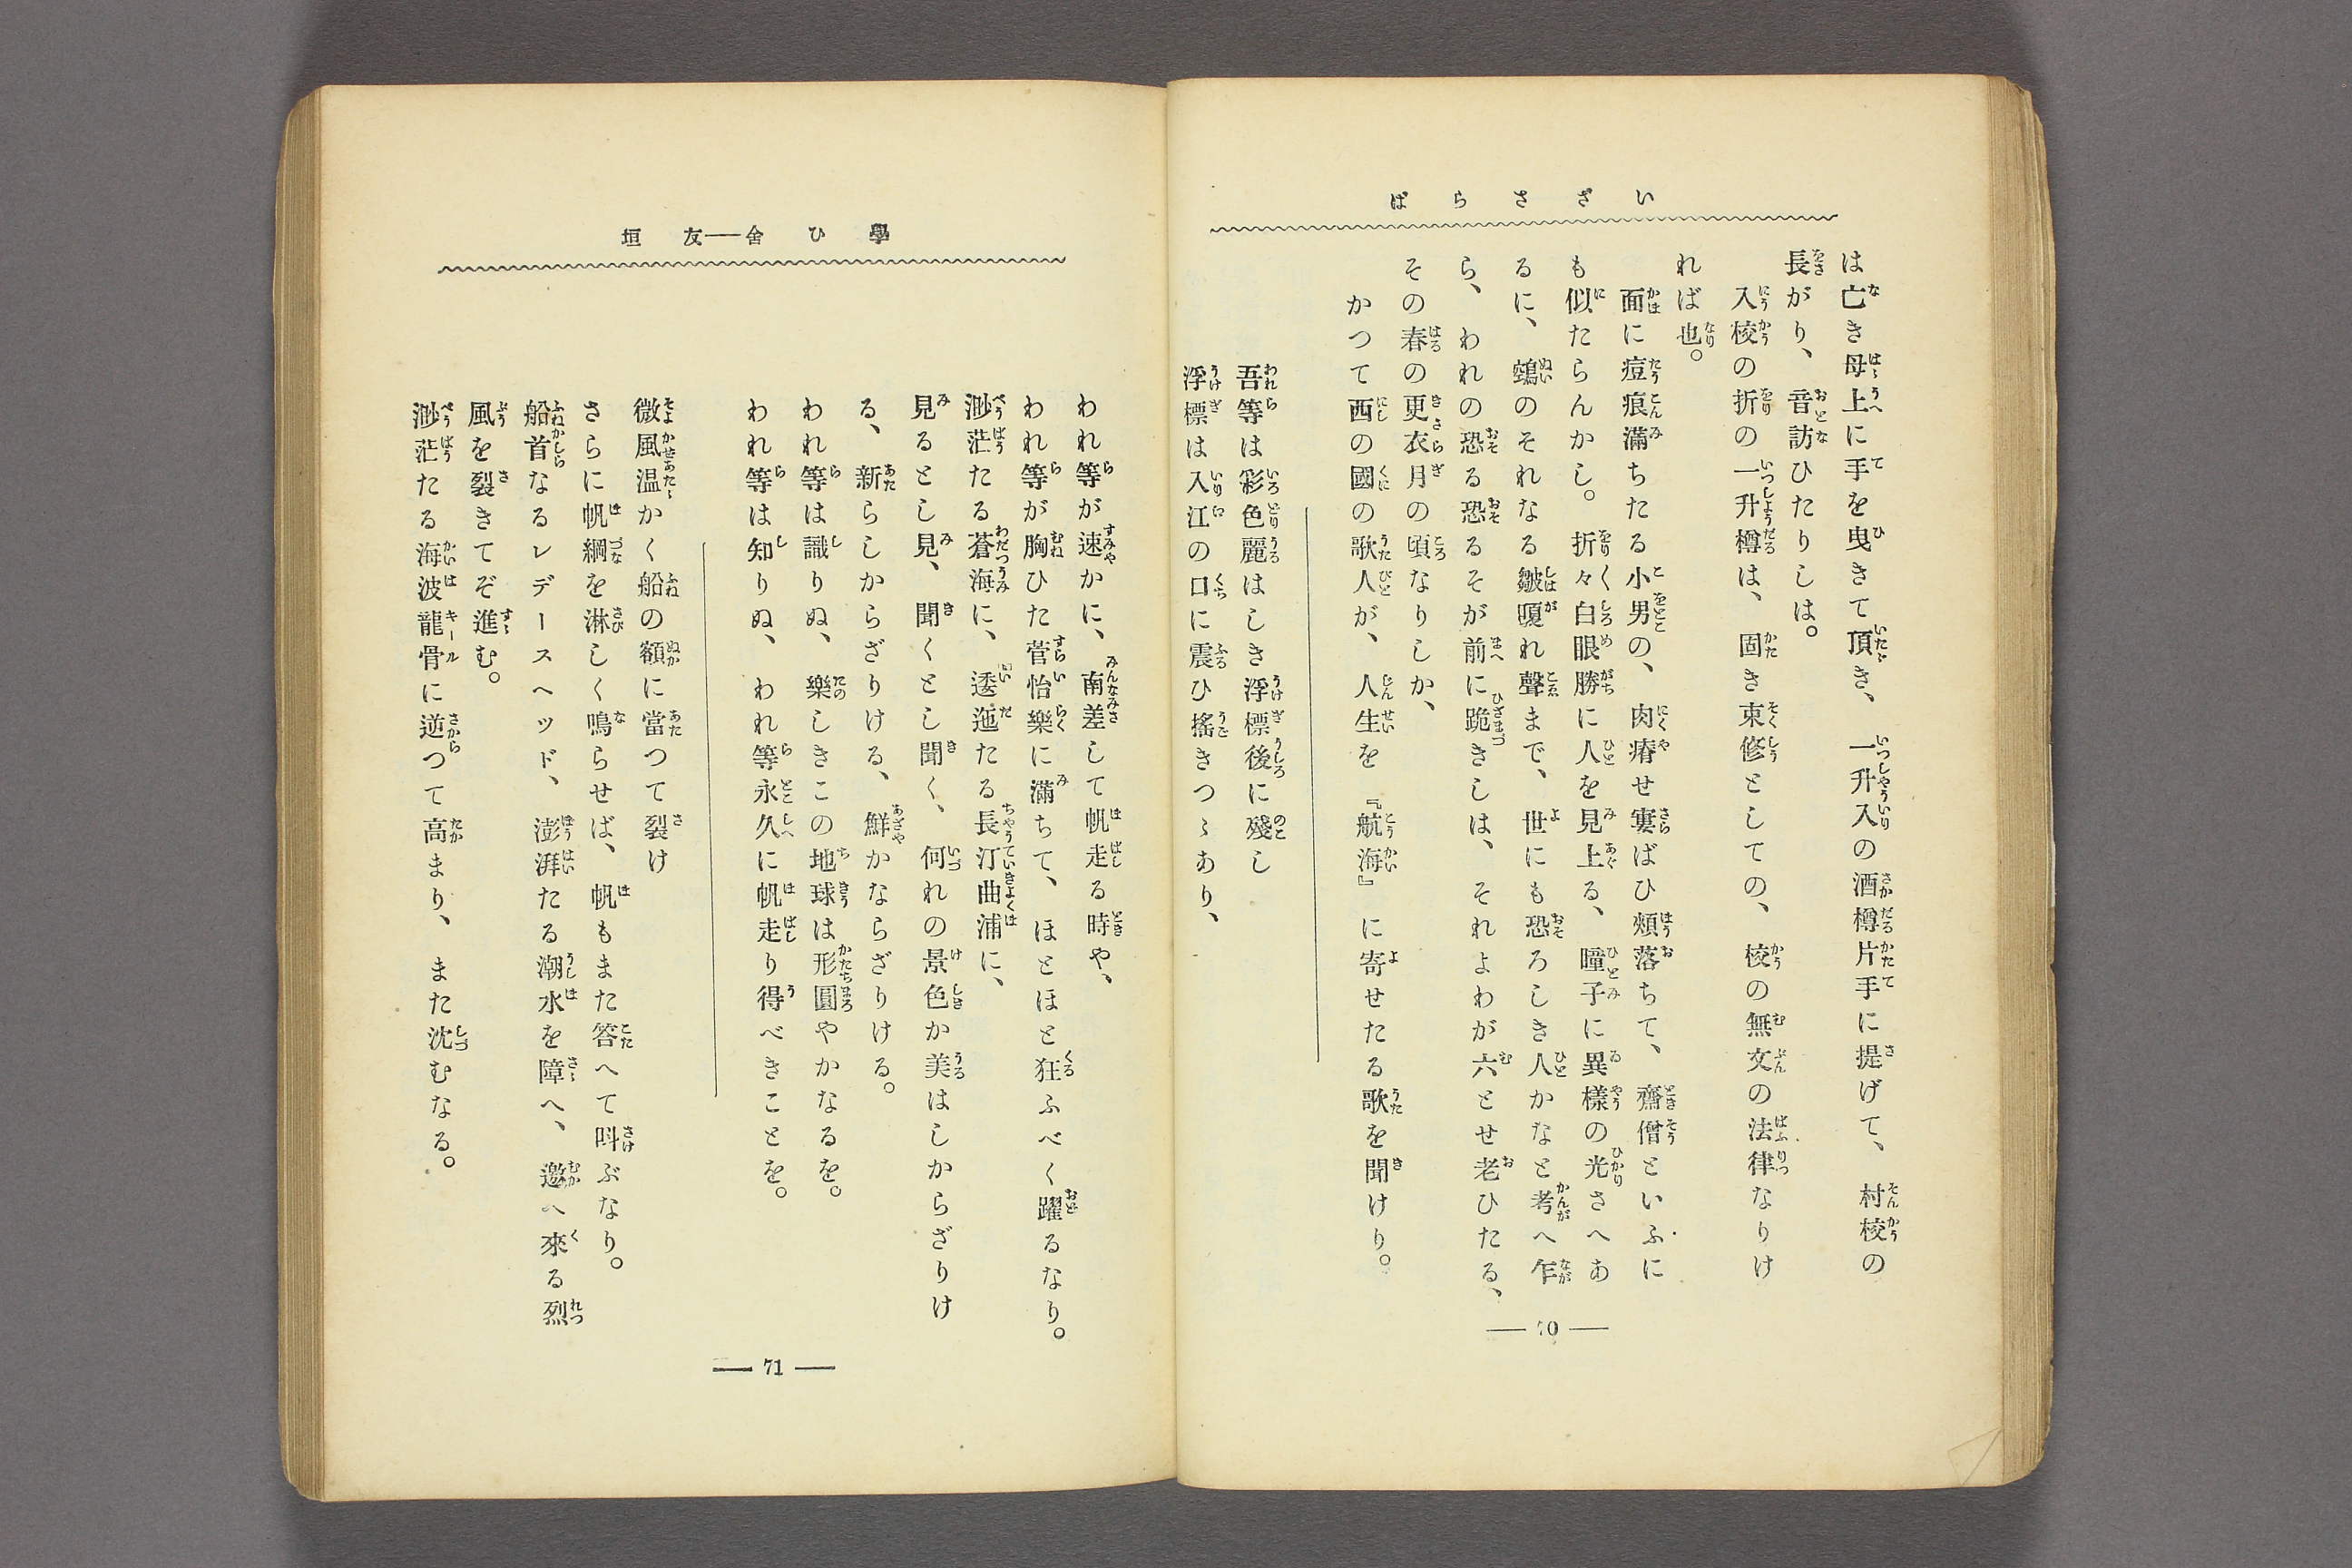 いざさらば
は亡き母上に手を曳きて頂き、一升入の酒樽片手に提げて、村校の
長がり、音訪ひたりしは。
入校の折の一升樽は、固き束修としての、校の無文の法律なりけ
れば也。
面に痘痕滿ちたる小男の、肉瘠せ寠ばひ頬落ちて、齋僧といふに
も似たらんかし。折々白眼勝に人を見上る、瞳子に異樣の光さへあ
るに、鵼のそれなる皺嗄れ聲まで、世にも恐ろしき人かなと考へ乍
ら、われの恐る恐るそが前に跪きしは、それよわが六とせ老ひたる、
その春の更衣月の頃なりしか、
かつて西の國の歌人が、人生を『航海』に寄せたる歌を聞けり。
吾等は彩色麗はしき浮標後に殘し
浮標は入江の口に震ひ搖きつゝあり、
學ひ舍――友垣
われ等が速かに、南差して帆走る時や、
われ等が胸ひた菅怡樂に滿ちて、ほとほと狂ふべく躍るなり。
渺茫たる蒼海に、逶迤たる長汀曲浦に、
見るとし見、聞くとし聞く、何れの景色か美はしからざりけ
る、新らしからざりける、鮮かならざりける。
われ等は識りぬ、樂しきこの地球は形圓やかなるを。
われ等は知りぬ、われ等永久に帆走り得べきことを。
微風温かく船の額に當つて裂け
さらに帆綱を淋しく鳴らせば、帆もまた答へて呌ぶなり。
船首なるレデースヘッド、澎湃たる潮水を障へ、邀へ來る烈
風を裂きてぞ進む。
渺茫たる海波龍骨に逆つて高まり、また沈むなる。
— 71 —